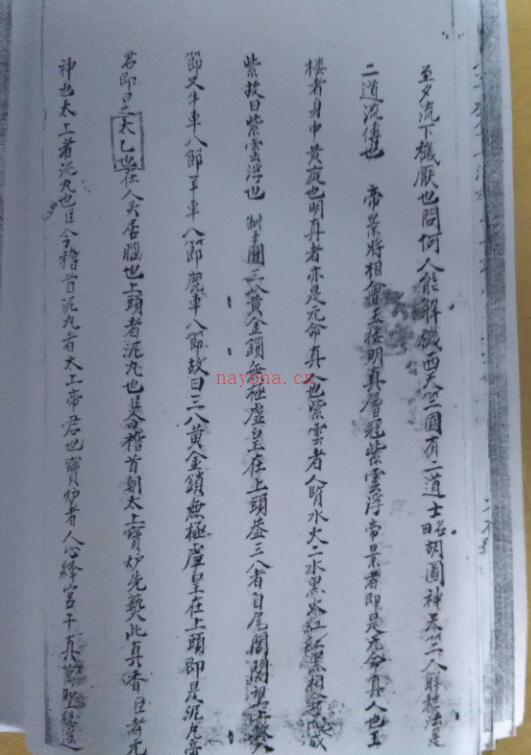 至夕流下機厭也問何人能解機西天竺國有二道士胡國神天竺人解想法
二道流傳也 帝景將相會玉樓明真層冠紫雲浮帝景者即是元命真人也玉
樓者身中黃庭也明真者亦是元命真人也紫雲者人腎水火二水黑火紅紅黑相
紫故曰紫雲浮也 制玉關三八黃金鎖無極虛皇在上頭蓋三八者自尾閭關
節又牛車八節羊車八節鹿車八節故曰三八黃金鎖無極虛皇在上頭即是泥丸帝
君即是太乙也在人头居腦也上頭者泥丸也臣今稽首朝太上寶炉先爇此真香臣者元
神也太上者泥丸也臣今稽首泥丸者太上帝君也寶炉者人心絳宮千真萬聖
nayona.cn